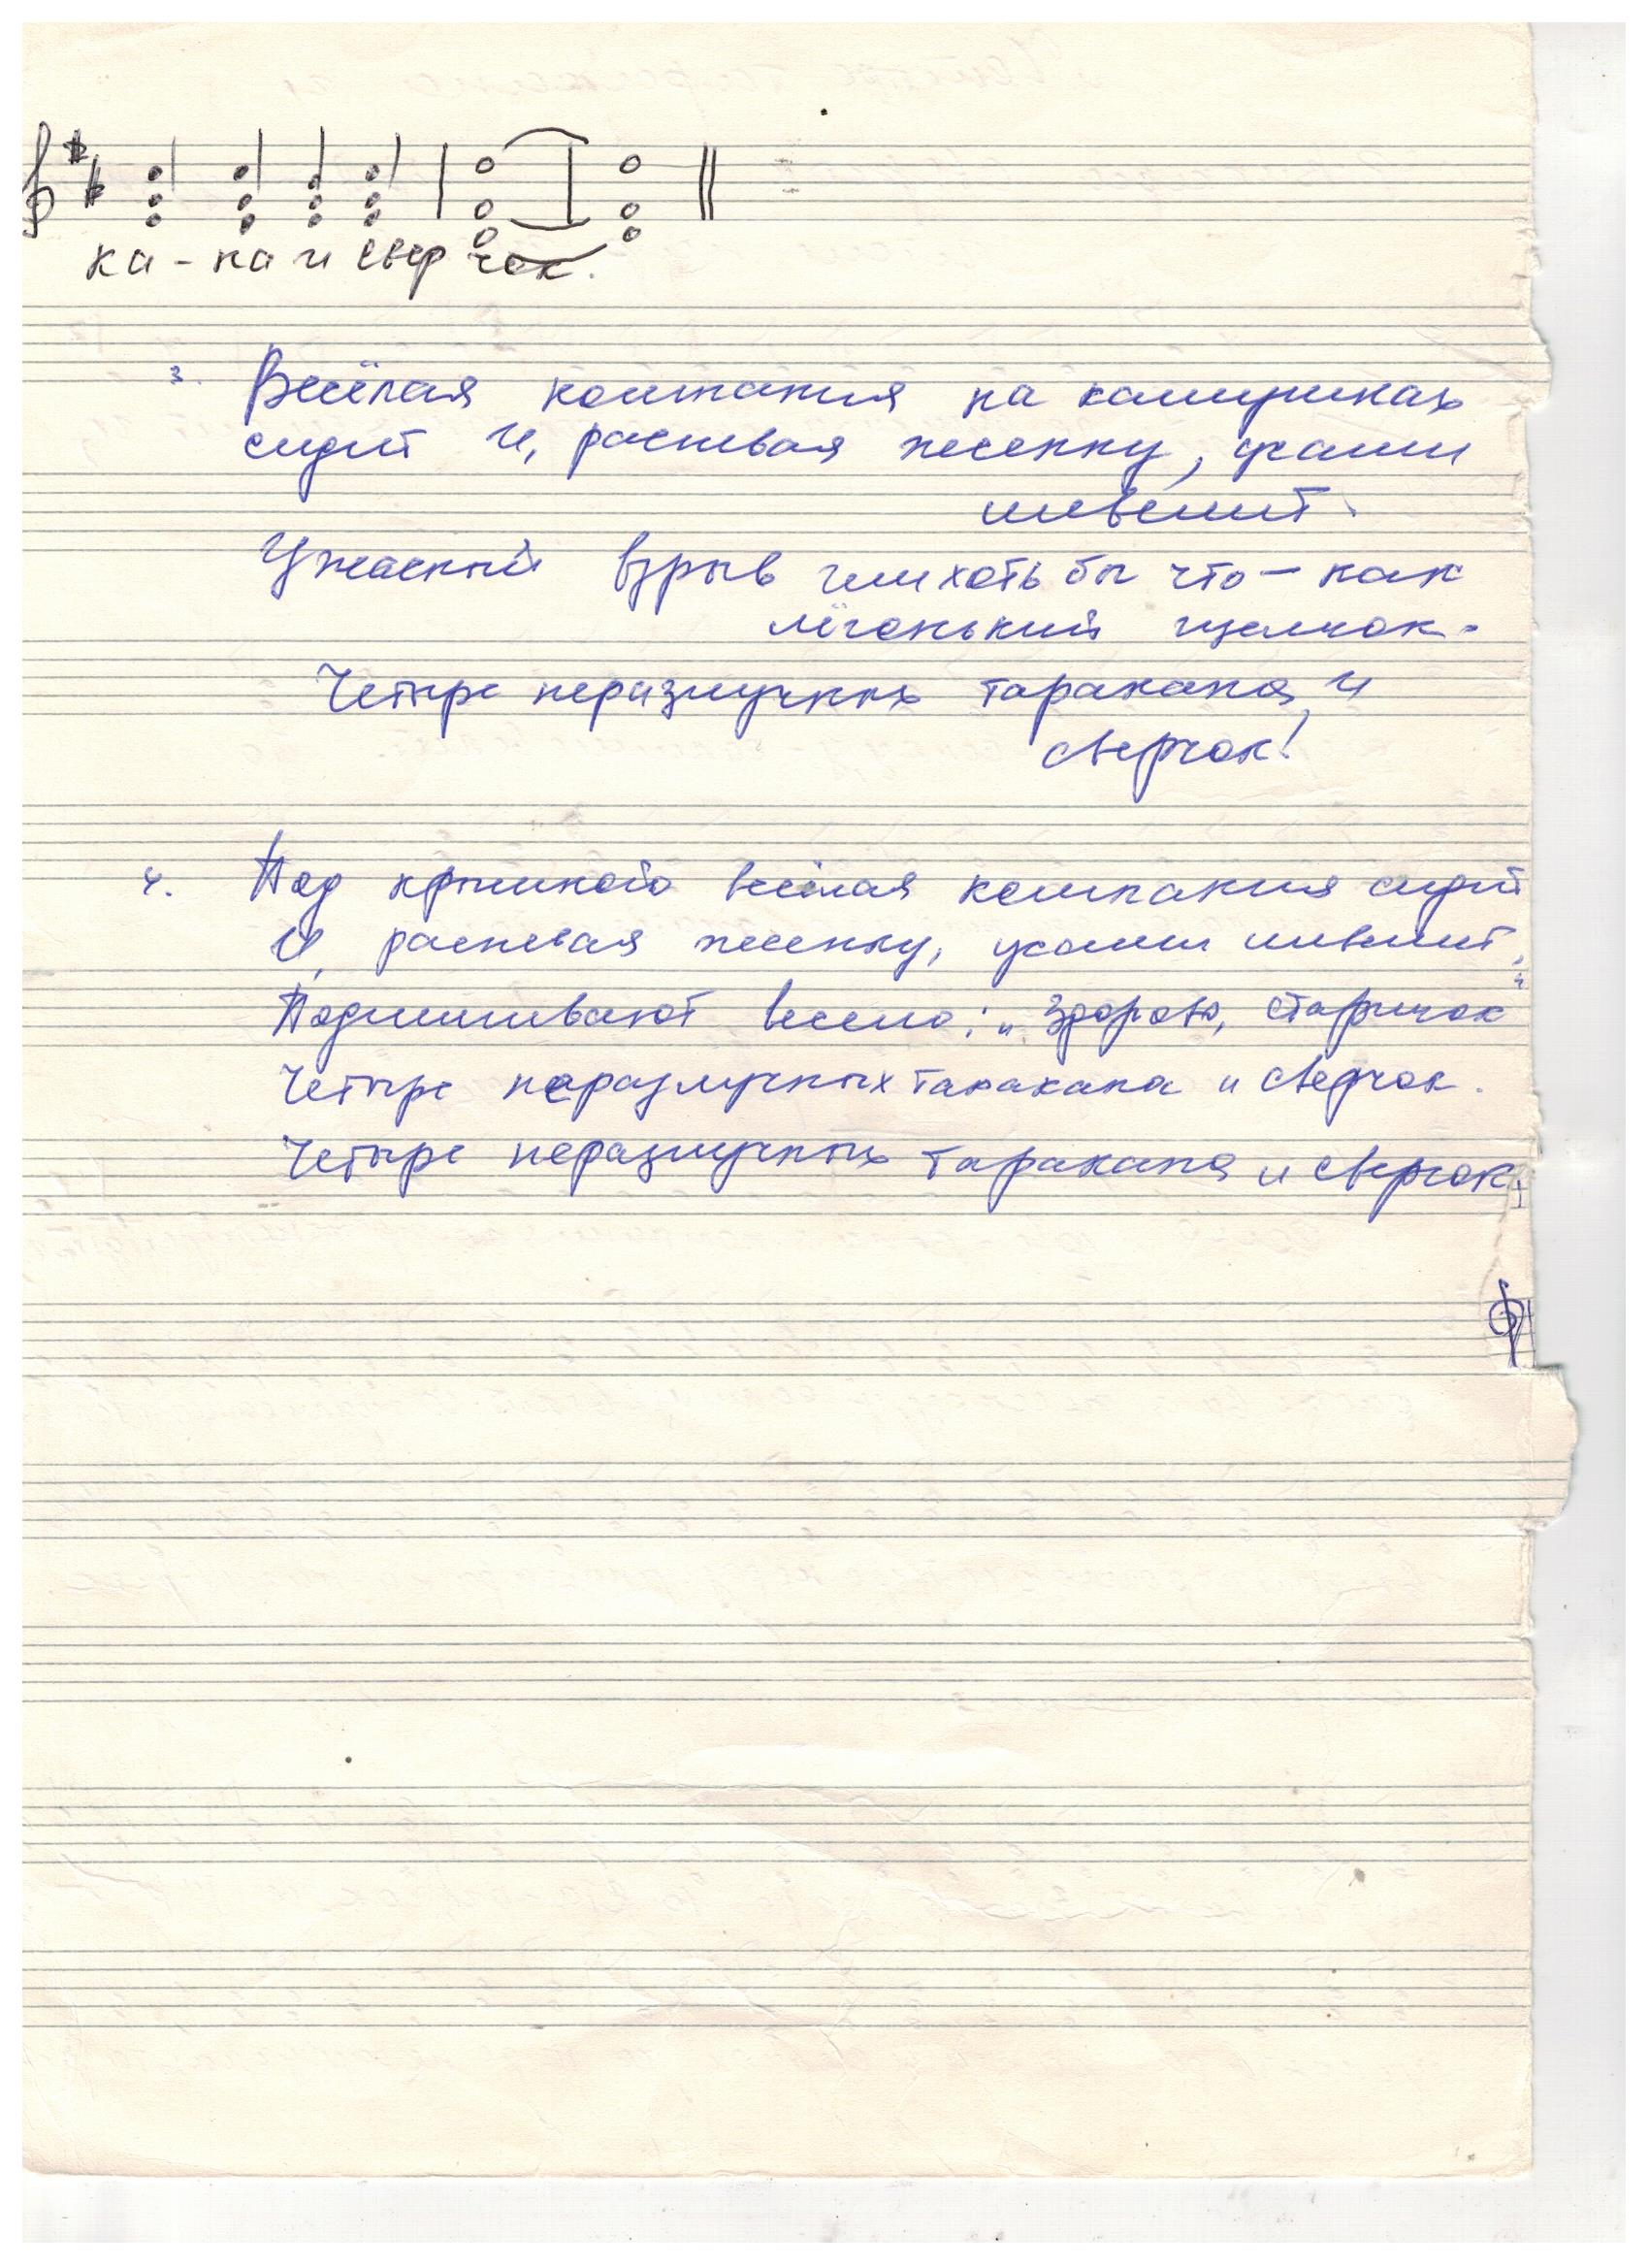 ка - на и свер чок.
3. Весёлая компания на камушках
сидит И, распевая песенку, усами
шевелит.
Ужасный взрыв им хоть бы что - как
лёгонький щелчок.
Четыре неразлучных таракана и
сверчок!
4. Под крышкою весёлая компания сидит
И, распевая песенку, усами шевелит,
Подшивают весело: „Здорово, старичок"
Четыре неразлучных таракана и сверчок.
Четыре неразлучных таракана и сверчок.